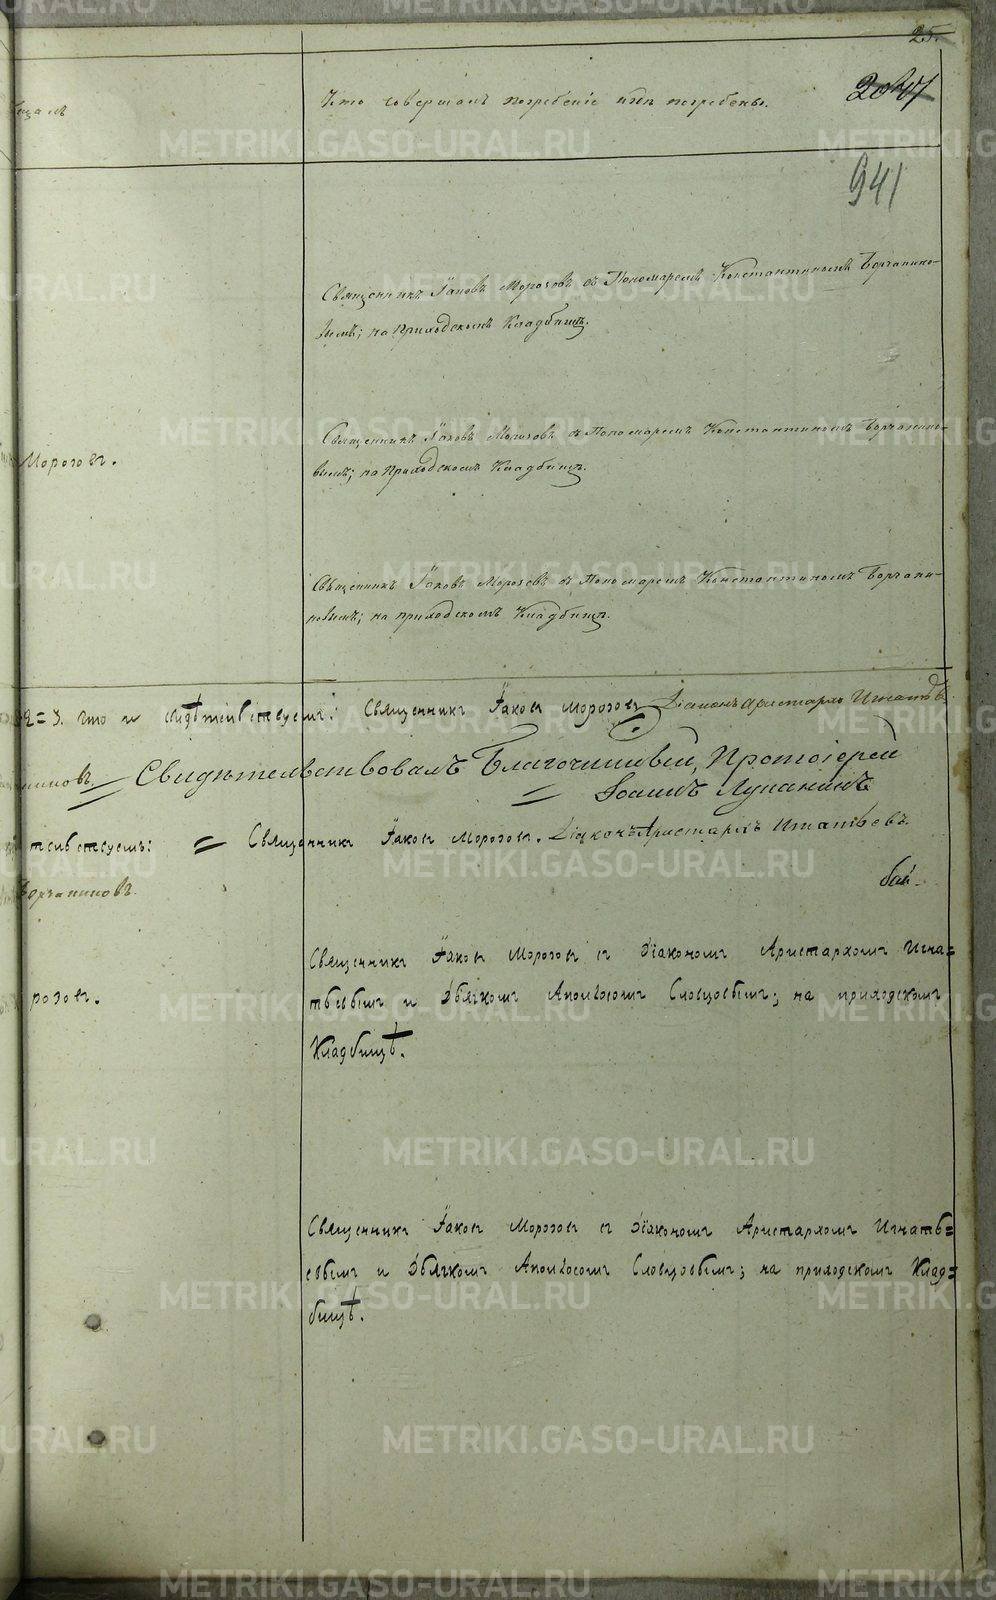 25.
Кто совершалъ погребеніе и гдѣ погребены.
941
Священникъ Іаковъ Морозовъ съ Пономаремъ Константиномъ Борчанино-
вымъ; на Приходскомъ Кладбищѣ.
Священникъ Іаковъ Морозовъ съ Пономаремъ Константиномъ Борчанино-
Морозовъ.
вымъ; на Приходскомъ Кладбищѣ.
Священникъ Іаковъ Морозовъ съ Пономаремъ Константиномъ Борчани-
новымъ; на приходскомъ Кладбищѣ.
что и свидѣтельствуемъ: Священникъ Іаковъ Морозовъ Діаконъ Аристархъ Игнатьевъ
ниновъ = Свидѣтельствовалъ Благочинный, Протоіерей
= Іоаннъ Лупанинъ
тельствуемъ: = Священникъ Іаковъ Морозовъ. Діаконъ Аристархъ Игнатьевъ.
Борчаниновъ.
Священникъ Іаковъ Морозовъ съ Діакономъ Аристархомъ Игна=
розовъ.
тьевымъ и Дьячкомъ Аполлосомъ Словцовымъ; на приходскомъ
Кладбищѣ.
Священникъ Іаковъ Морозовъ съ Діакономъ Аристархомъ Игнать=
евымъ и Дьячкомъ Аполлосомъ Словцовымъ; на приходскомъ Клад=
бищѣ.
METRIKI.GASO-URAL.RU